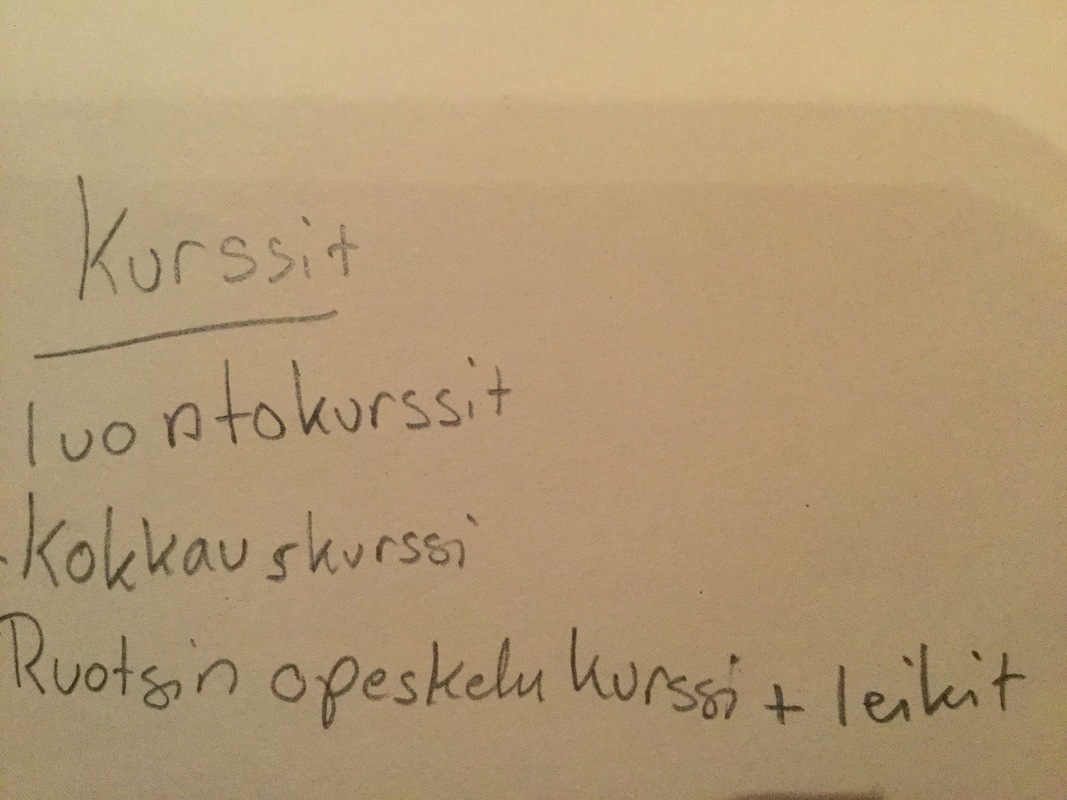 Kurssit
luontokurssit
Kokkauskurssi
Ruotsin opeskelu kurssi + leikit